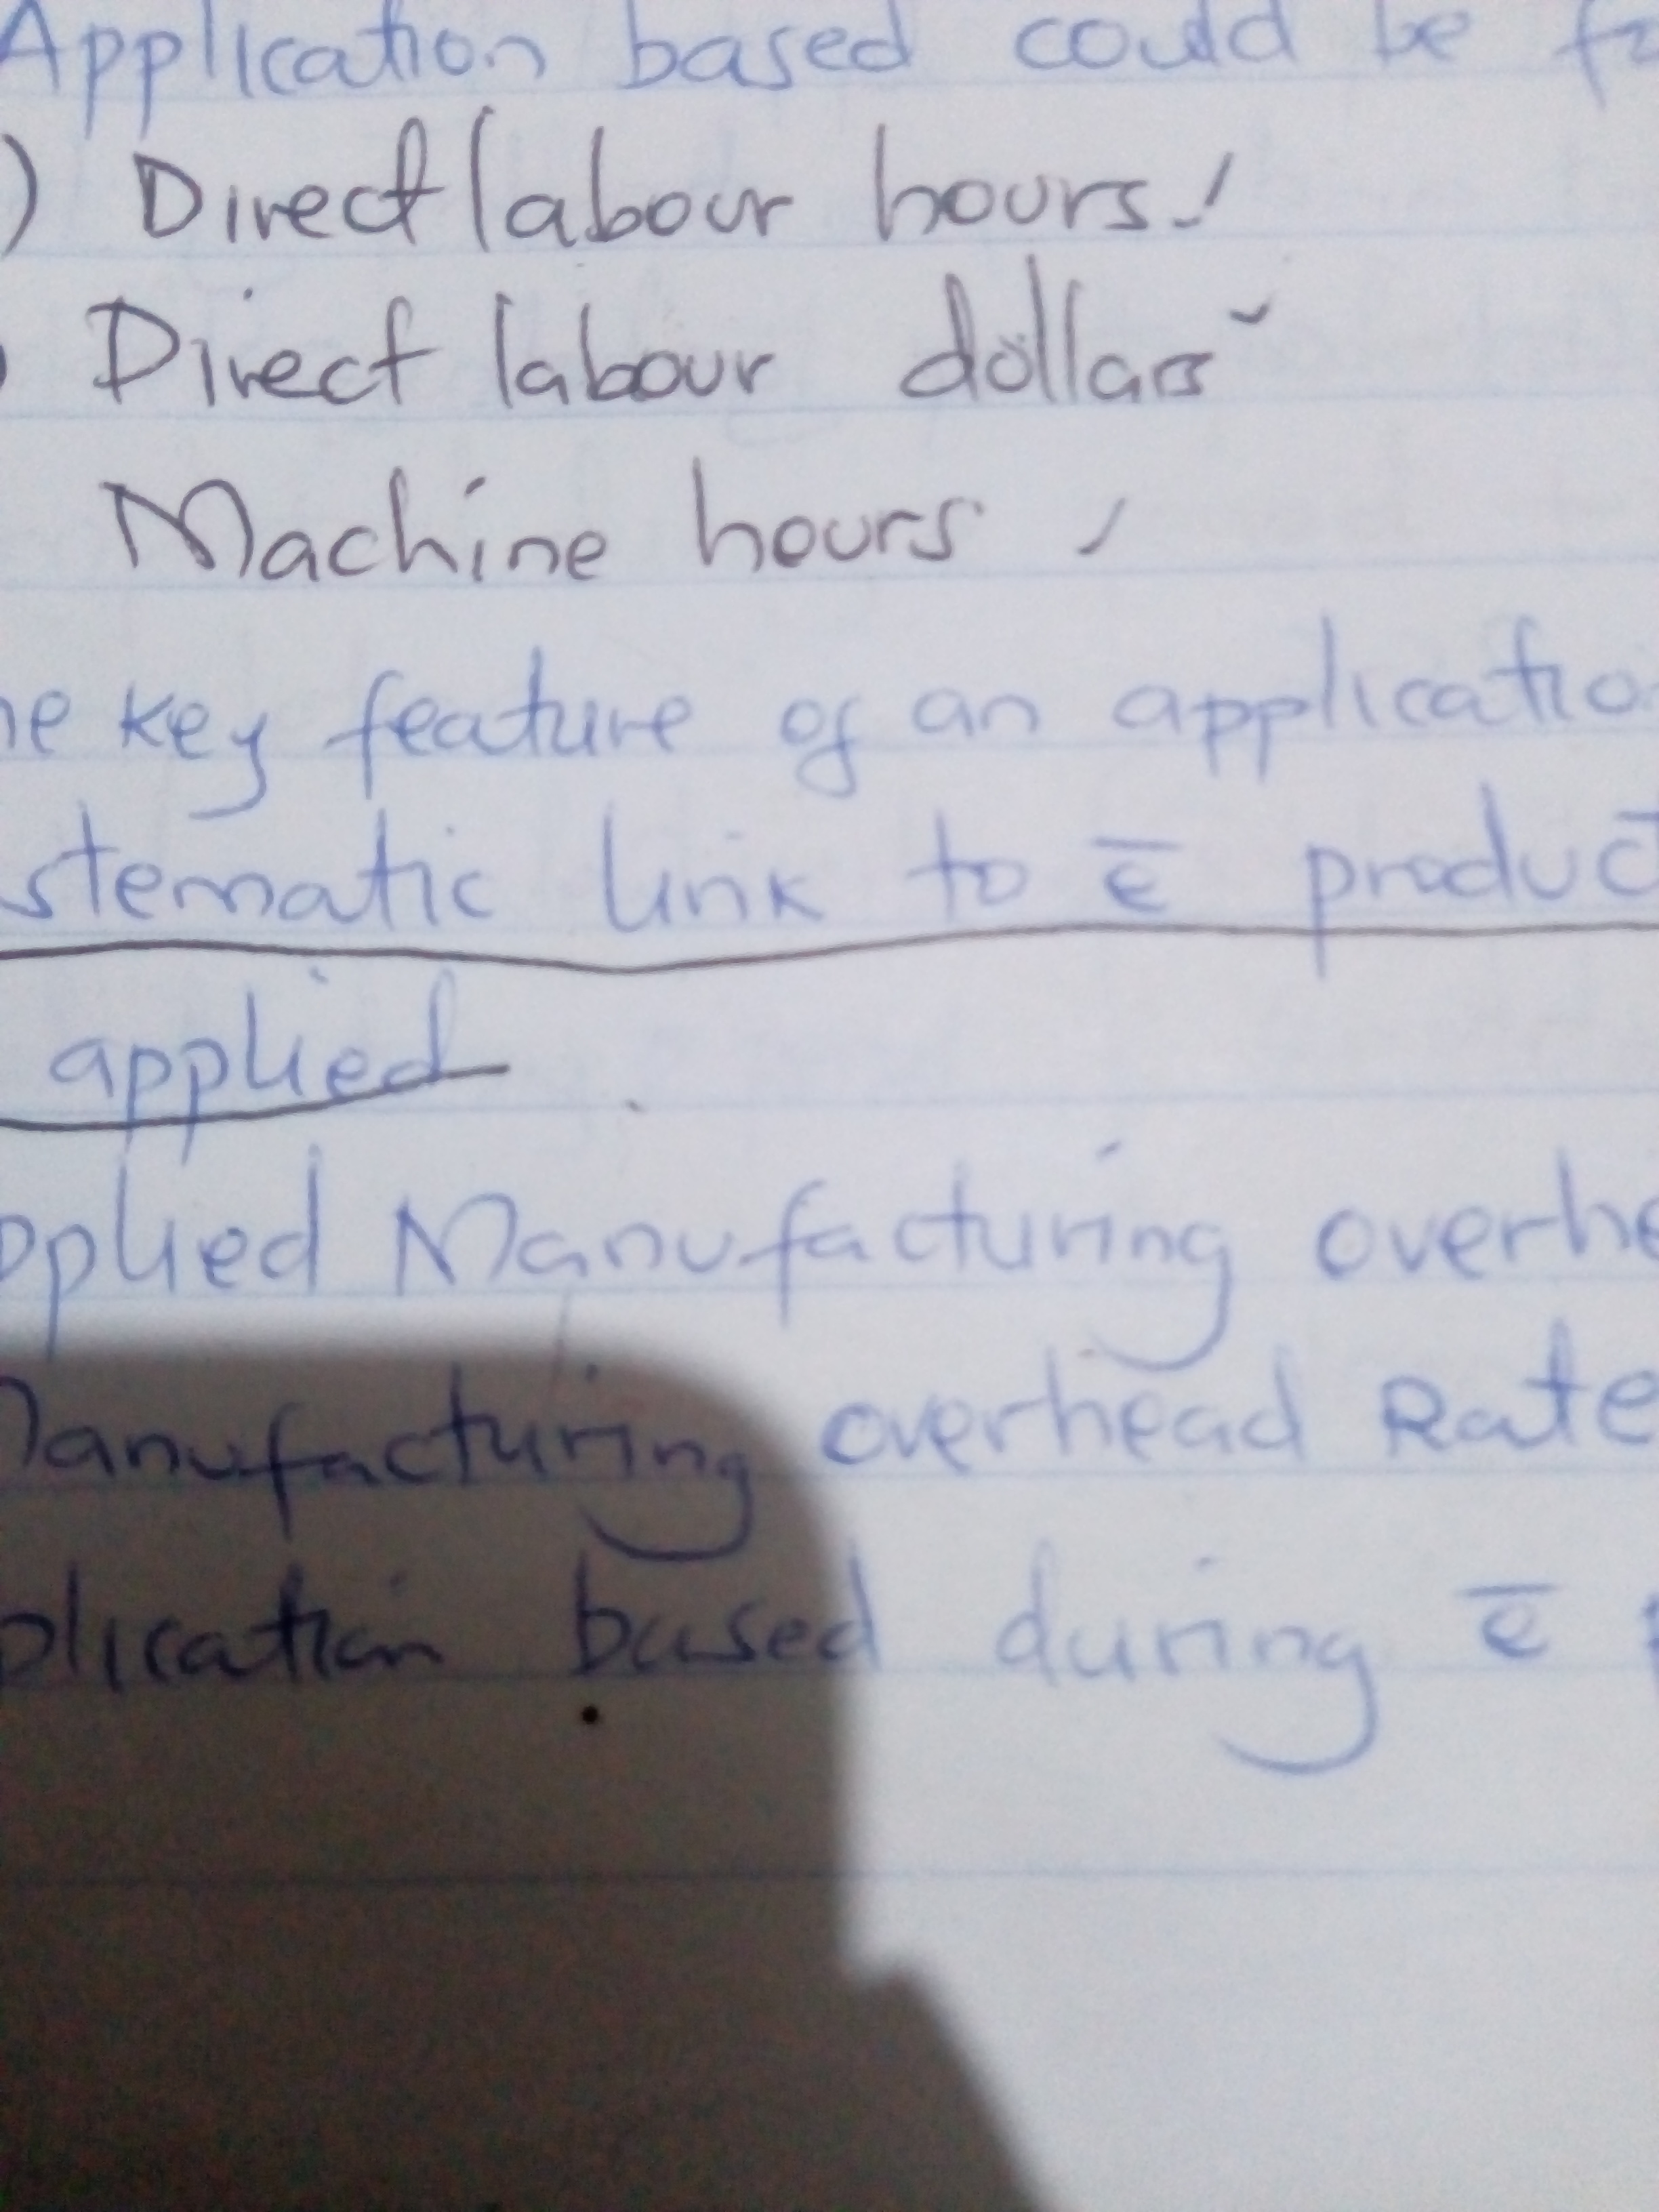 Application based could be
) Direct labour hours
Direct labour dollars
Machine hours
key feature of an applicatio
stematic link to ē product
applied
pplied Manufacturing overhe
Manufacturing overhead Rate
plication based during ē